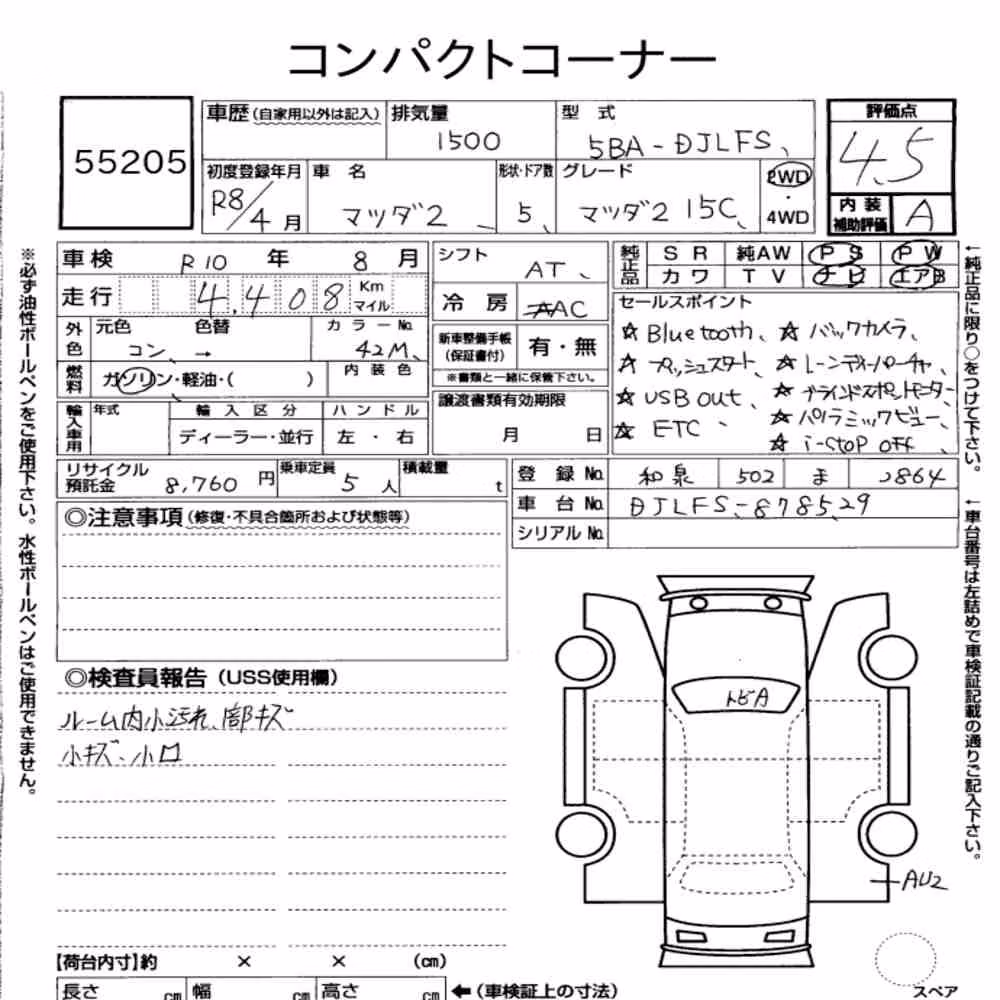 コンパクトコーナー
55205
車歴 (自家用以外は記入) 排気量 型式
1500 5BA-DJLFS
評価点
4.5
内装補助評価 A
初度登録年月 車名 形状・ドア数 グレード 2WD・4WD
R8/4月 マツダ2 5 マツダ2 15C
車検 R10年 8月
走行 4,408 Km マイル
外色 元色 色替 カラーNo.
コン → 42M
燃料 ガソリン・軽油・( ) 内装色
輸入車用 年式 輸入区分 ハンドル
ディーラー・並行 左・右
シフト AT
冷房 AAC
新車整備手帳(保証書付) 有・無
※書類と一緒に保管下さい。
譲渡書類有効期限
月 日
純正品 SR 純AW PS PW
カワ TV ナビ エアB
セールスポイント
☆Bluetooth、☆バックカメラ、
☆プッシュスタート ☆レーンディパーチャ、
☆USB out、☆ブラインドスポットモニター
☆ETC、☆パノラミックビュー、
☆i-STOP OFF
リサイクル預託金 8,760円 乗車定員 5人 積載量 t
登録No. 和泉 502 ま 2864
車台No. DJLFS-878529
シリアルNo.
◎注意事項 (修復・不具合箇所および状態等)
◎検査員報告 (USS使用欄)
ルーム内小汚れ、部キズ
小キズ・小凹
トビA
AU2
【荷台内寸】約 × × (cm)
長さ cm 幅 cm 高さ cm ←(車検証上の寸法)
スペア
※必ず油性ボールペンをご使用下さい。水性ボールペンはご使用できません。
←純正品に限り○をつけて下さい。
←車台番号は左詰めで車検証記載の通りご記入下さい。